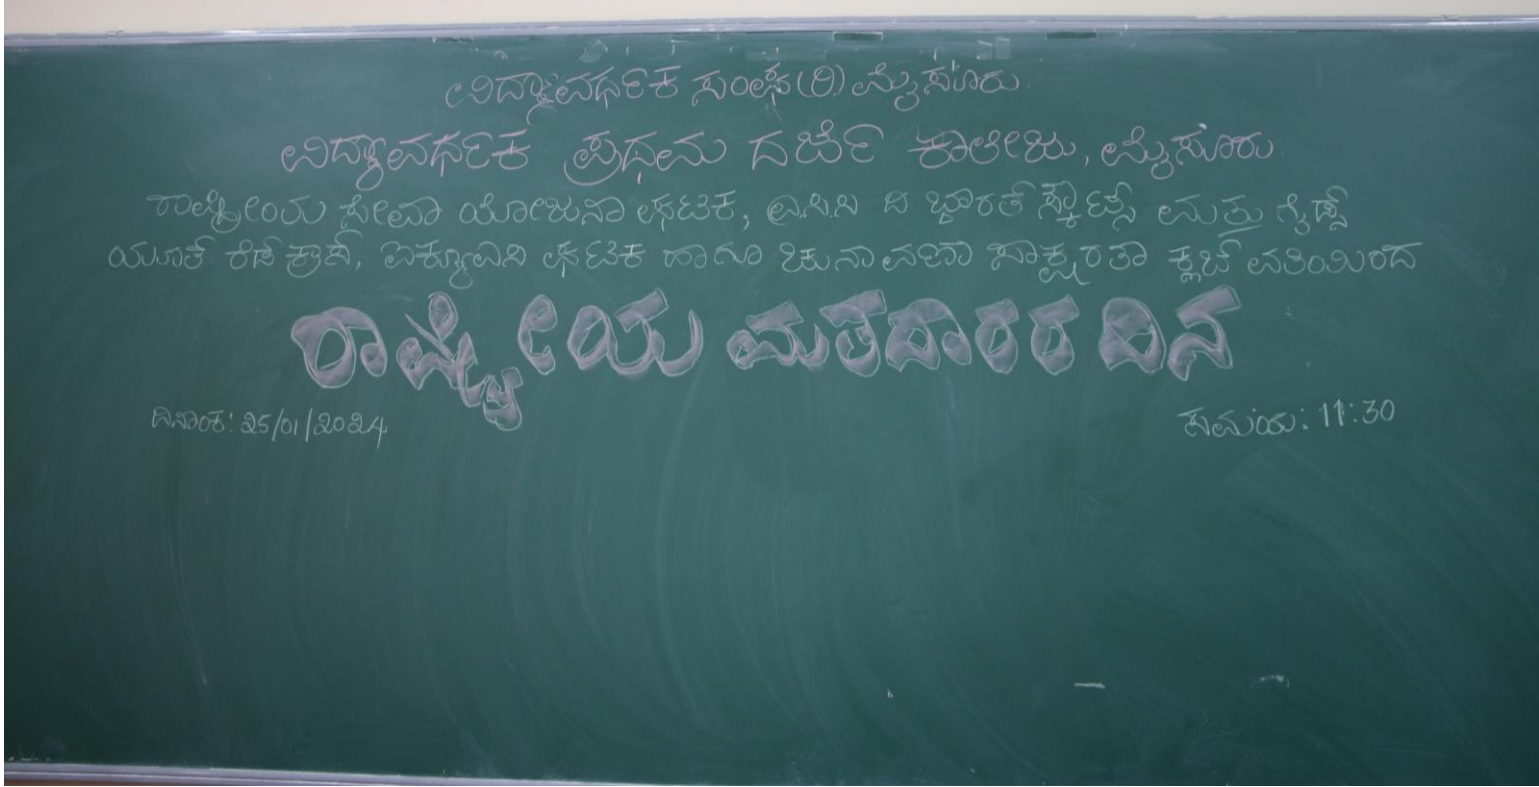 ವಿದ್ಯಾವರ್ಧಕ ಸಂಘ(ರಿ) ಮೈಸೂರು
ವಿದ್ಯಾವರ್ಧಕ ಪ್ರಥಮ ದರ್ಜೆ ಕಾಲೇಜು, ಮೈಸೂರು
ರಾಷ್ಟ್ರೀಯ ಸೇವಾ ಯೋಜನಾ ಘಟಕ, ಎನ್.ಸಿ.ಸಿ ದಿ ಭಾರತ್ ಸ್ಕೌಟ್ಸ್ ಮತ್ತು ಗೈಡ್ಸ್
ಯೂತ್ ರೆಡ್ ಕ್ರಾಸ್, ಐಕ್ಯೂಎಸಿ ಘಟಕ ಹಾಗೂ ಚುನಾವಣಾ ಸಾಕ್ಷರತಾ ಕ್ಲಬ್ ವತಿಯಿಂದ
ರಾಷ್ಟ್ರೀಯ ಮತದಾರರ ದಿನ
ದಿನಾಂಕ: 25/01/2024 ಸಮಯ: 11:30